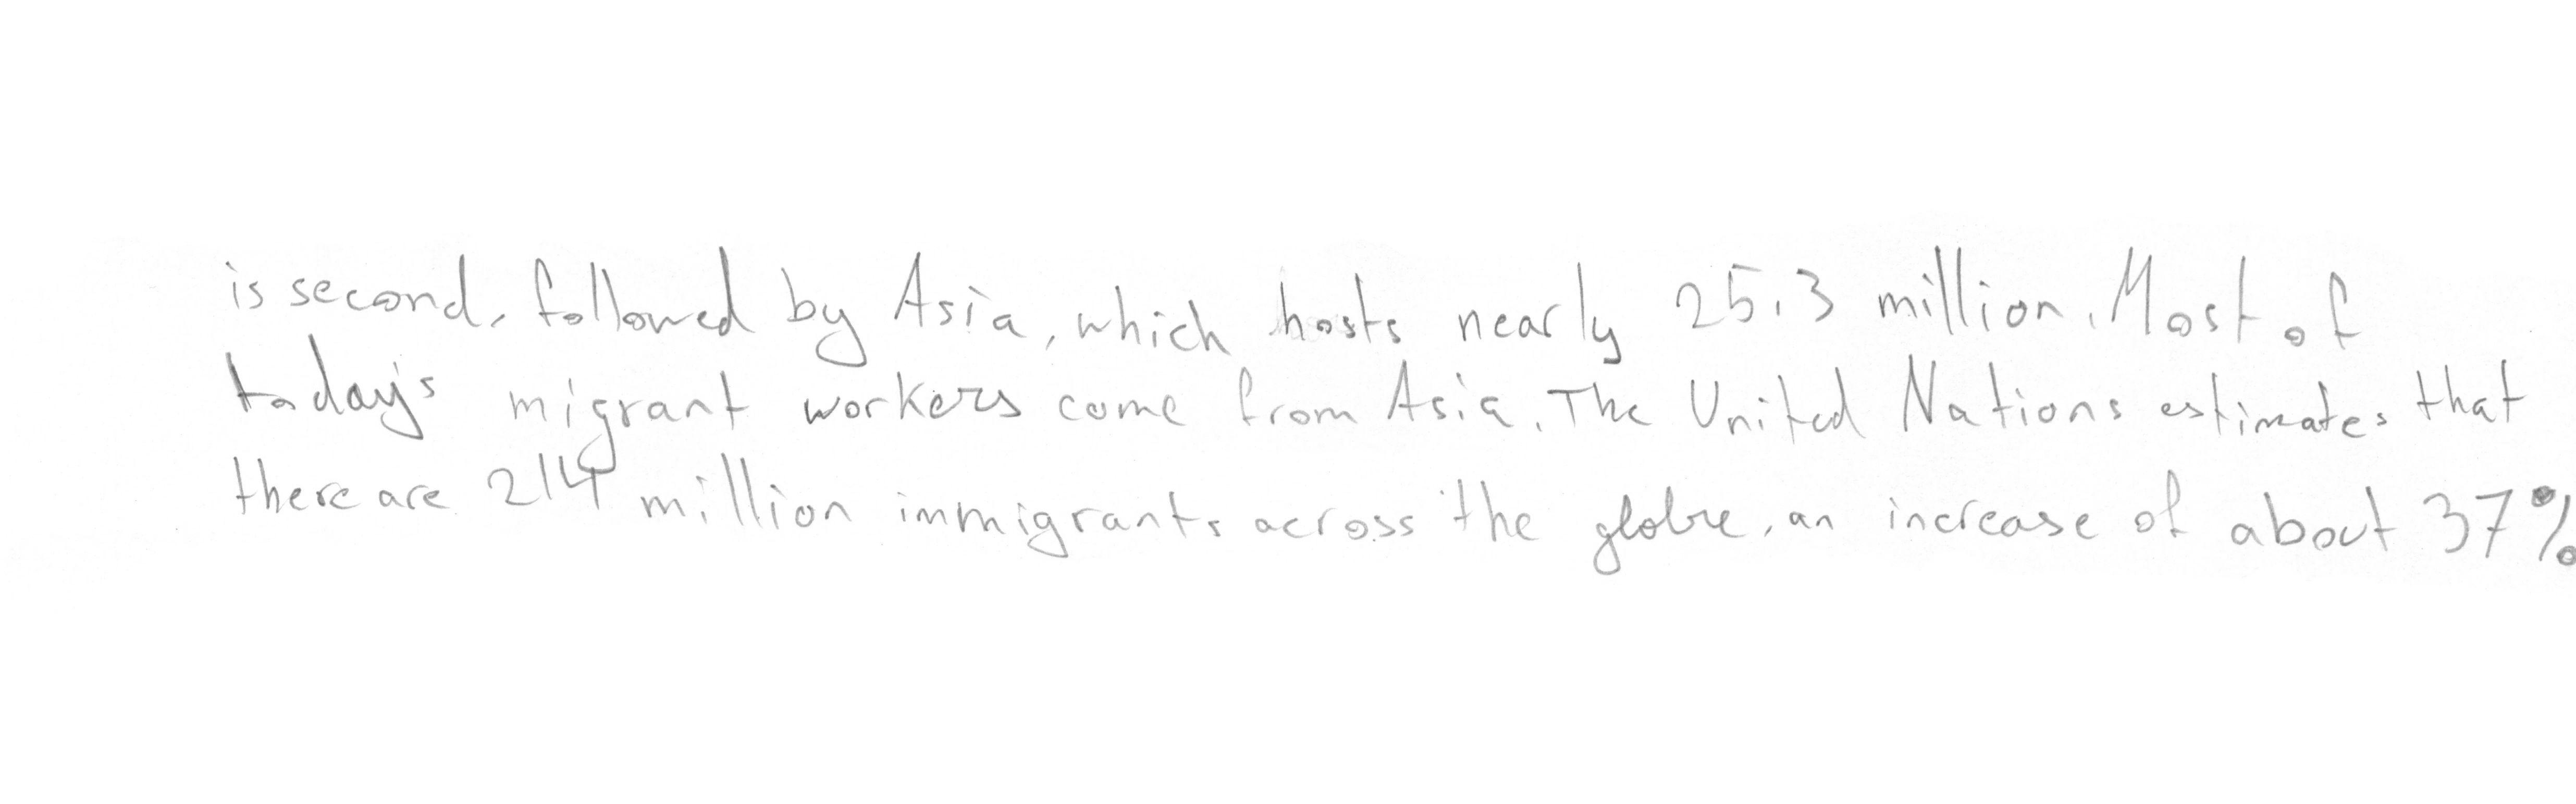 is second, followed by Asia, which hosts nearly 25.3 million. Most of
today's migrant workers come from Asia. The United Nations estimates that
there are 214 million immigrants across the globe, an increase of about 37%